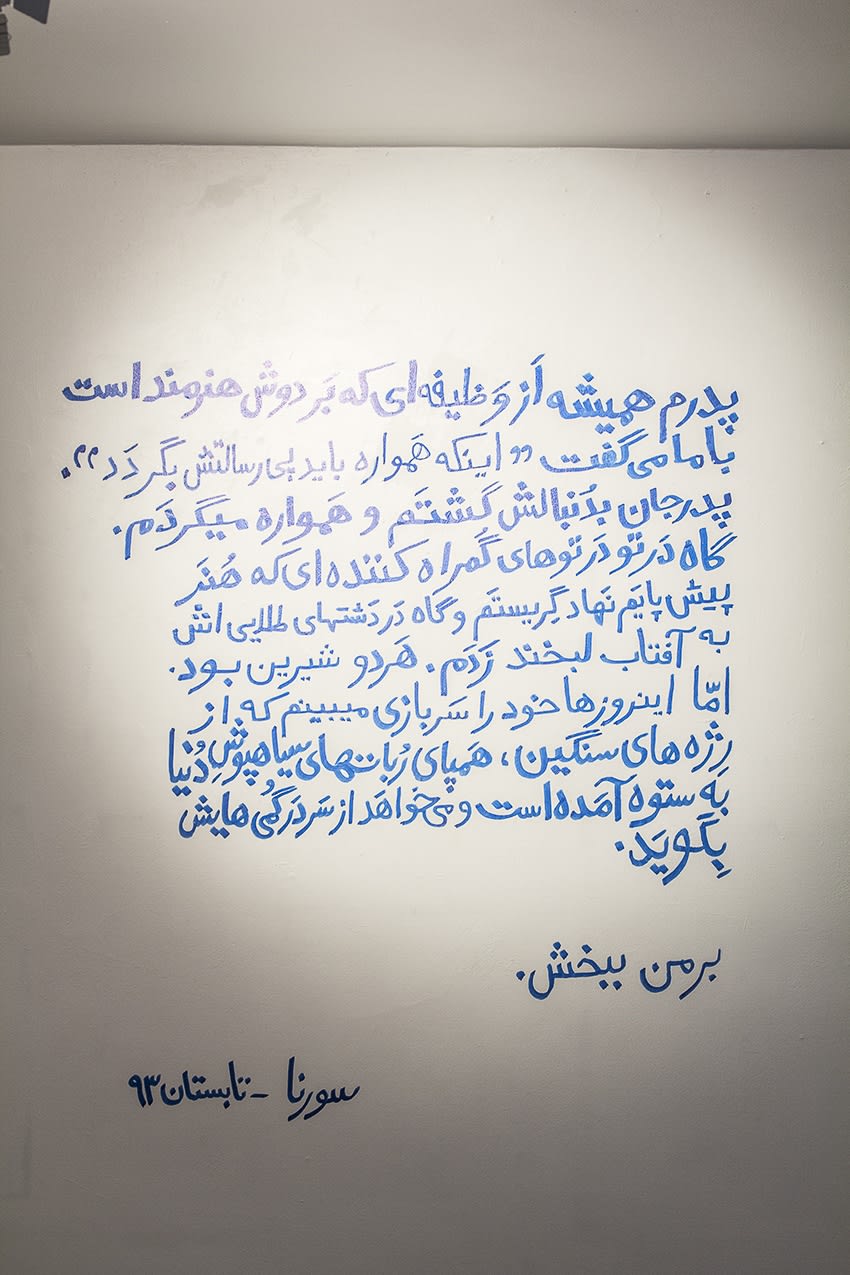 پدرم همیشه اَز وَظیفه‌ای که بَر دوش هنرمند است
با ما می‌گفت „اینکه هَمواره باید پی رسالتش بگردَد”.
پدرجان بدُنبالش گَشتَم و هَمواره میگردَم.
گاه دَر تو دَر توهای گُمراه کننده‌ای که هُنَر
پیش پایَم نَهاد گِریستَم و گاه دَر دَشتهای طلایی اش
به آفتاب لبخند زَدَم. هَردو شیرین بود.
امّا اینروزها خود را سَربازی میبینم که از
رژه‌های سنگین، هَمپای رُباتهای سیاهپوشِ دُنیا
بَه ستوه آمَده است و می‌خواهَد از سَردَرگُمی‌هایش
بِگویَد.
بر من ببخش.
سورنا - تابستان ۹۳